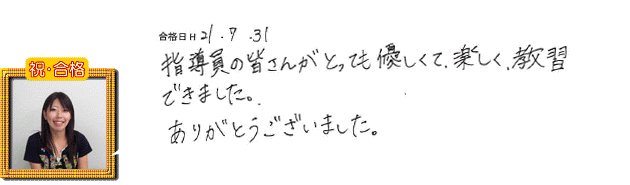 合格日 H 21.7.31
祝・合格
指導員の皆さんがとっても優しくて、楽しく、教習
できました。
ありがとうございました。